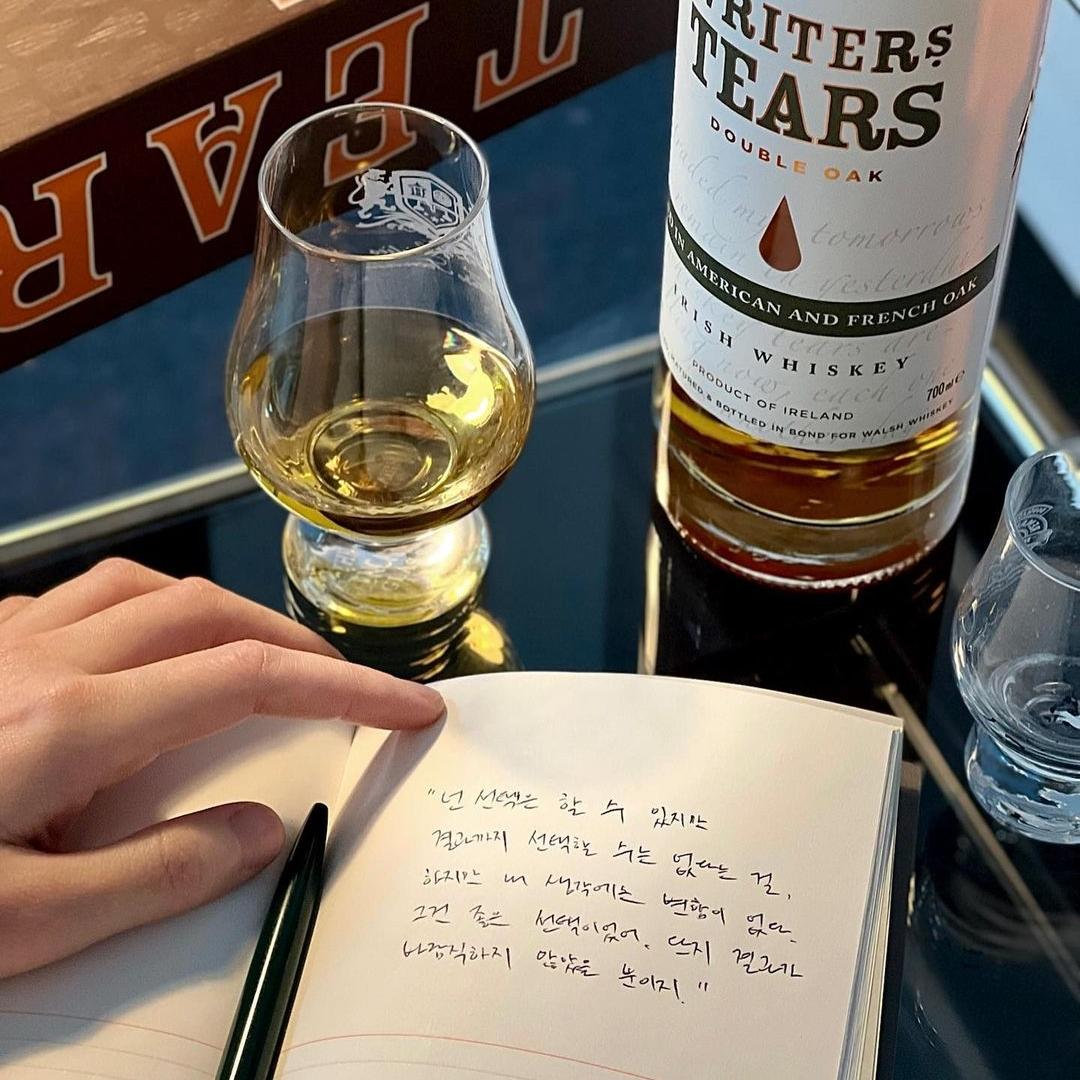 TEAR
WRITERS
TEARS
DOUBLE OAK
tomorrows
yesterday
IN AMERICAN AND FRENCH OAK
IRISH WHISKEY
tears are
know each
PRODUCT OF IRELAND
700ml e
& BOTTLED IN BOND FOR WALSH WHISKEY
"넌 선택은 할 수 있지만
결과까지 선택할 수는 없다는 걸,
하지만 내 생각에는 변함이 없다.
그건 좋은 선택이었어. 단지 결과가
바람직하지 않았을 뿐이지."